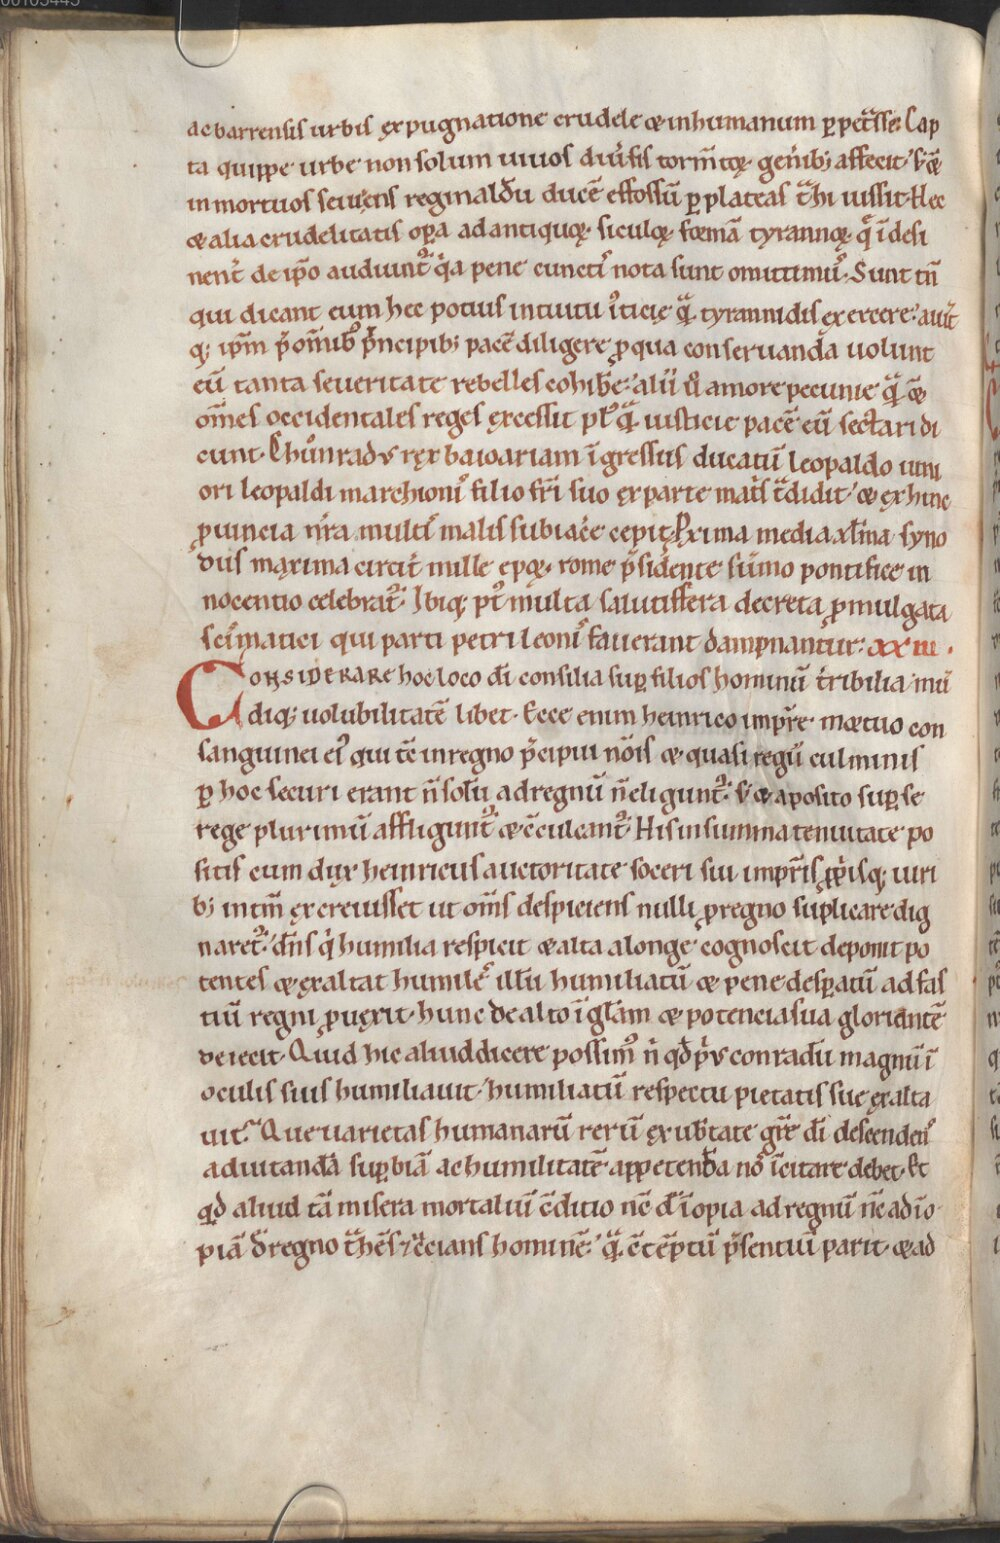 ac barrensis urbis ęxpugnatione crudele & inhumanum ꝑpet̃sse. Cap
ta quippe urbe non solum uiuos diũsis torm̃toꝝ gen̄ib; affecit. s; &̃
in mortuos seuięns reginaldũ ducẽ effossũ ꝑ plateas t̃hi iussit. Hec
& alia crudelitatis opa ad antiquoꝝ siculoꝝ formã tyrannoꝝ. q̃ ĩ desi
nent̃ de ip̃o audiunt᷑ q̃a pene cunctis nota sunt omittimus. Sunt tñ
qui dicant eum hec potius intuitu iusticię q̃ tyrannidis ęxercere. aiũt
q; ip̃m p̃ om̃ib; p̃ncipib; pacẽ diligere ꝓ qua conseruanda uolunt
eũ tanta seueritate rebelles cohibẽ. alii ũo amore pecunie q̃ q̃ &
om̃es occidentales reges ęxcessit pot᷑ q̃ iusticie pacẽ eũ sectari di
cunt. Chũnradus ręx baioariam ĩgressus ducatũ leopaldo iuni
ori leopaldi marchionis filio fr̃i suo ęx parte mat̃s t̃didit. & ęx hinc
ꝓuincia nr̃a multis malis subiacẽ cepit. Pxima media xl̃ma syno
dus mąxima circit̃ mille ep̃oꝝ. rome p̃sidente sũmo pontifice in
nocentio celebrat᷑. Ibiq; pt᷑ multa salutiffera decreta ꝓmulgata
scismatici qui parti petri leonis fauerant dampnantur. xx iii.
Considerare hoc loco dĩ consilia sup filios hominũ t̃ribilia. mũ
diq; uolubilitatẽ libet. Ecce enim heinrico imp̃re mortuo con
sanguinei eius qui tc̃ in regno p̃cipui nõis & quasi regũ culminis
ꝑ hoc securi erant ñ solũ ad regnũ ñ eligunt᷑. s; & aposito sup se
rege plurimũ affligunt᷑ & cõculcant᷑. His in summa tenuitate po
sitis cum dux heinricus auctoritate soceri sui imp̃ris ꝓp̃isq; uiri
b; in tm̃ ęxcreuisset ut om̃s despiciens nulli ꝓ regno suplicare dig
naret᷑. dñs q̃ humilia respicit & alta a longe cognoscit deponit po
tentes & ęxaltat humiles illũ humiliatũ & pene despatũ ad fas
tiũ regni ꝓuęxit. hunc de alto ĩ gl̃am & potencia sua gloriantẽ
deiecit. Quid hic aliud dicere possim᷑ ñ qđ p̃us conradũ magnũ ĩ
oculis suis humiliauit. humiliatũ respectu pietatis sue ęxalta
uit. Que uarietas humanarũ rerũ ęx ubtate gr̃e dĩ descendens
ad uitandã supbiã ac humilitatẽ appetenda nos ĩcitare debet. Et
qđ aliud tã misera mortaliũ cõditio nẽ d̃ ĩopia ad regnũ nẽ ad ĩo
piã d̃ regno t̃hẽs cr̃cians hominẽ. q̃ cõtẽptũ p̃sentiũ parit. & ad